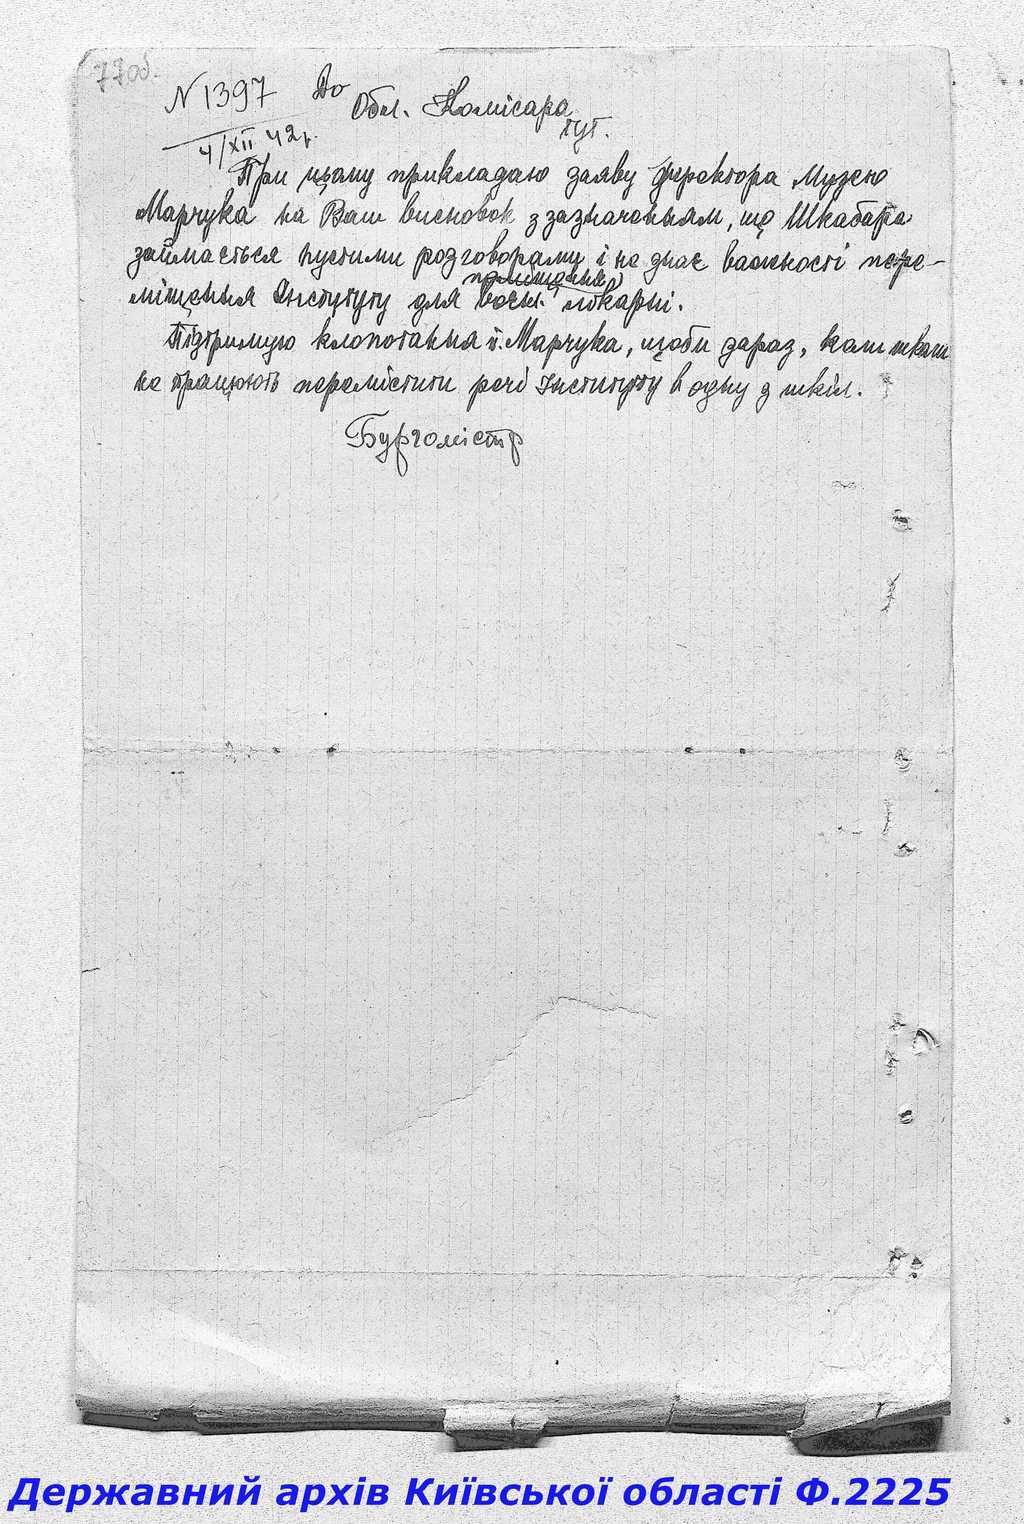 77об.
N 1397
До
Обл. Комісара
тут.
4/XII 42 р.
При цьому прикладаю заяву директора Музею
Марчука на Ваш висновок з зазначенням, що Шкабара
займається пустими розговорами і не знає важності пере-
міщення Інституту для воєн. лікарні.
Підтримую клопотання п. Марчука, щоби зараз, коли школи
не працюють перемістити речі Інституту в одну з шкіл.
Бургомістр
Державний архів Київської області Ф.2225